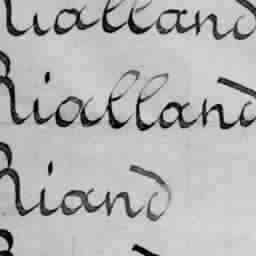 Rialland
Rialland
Riand